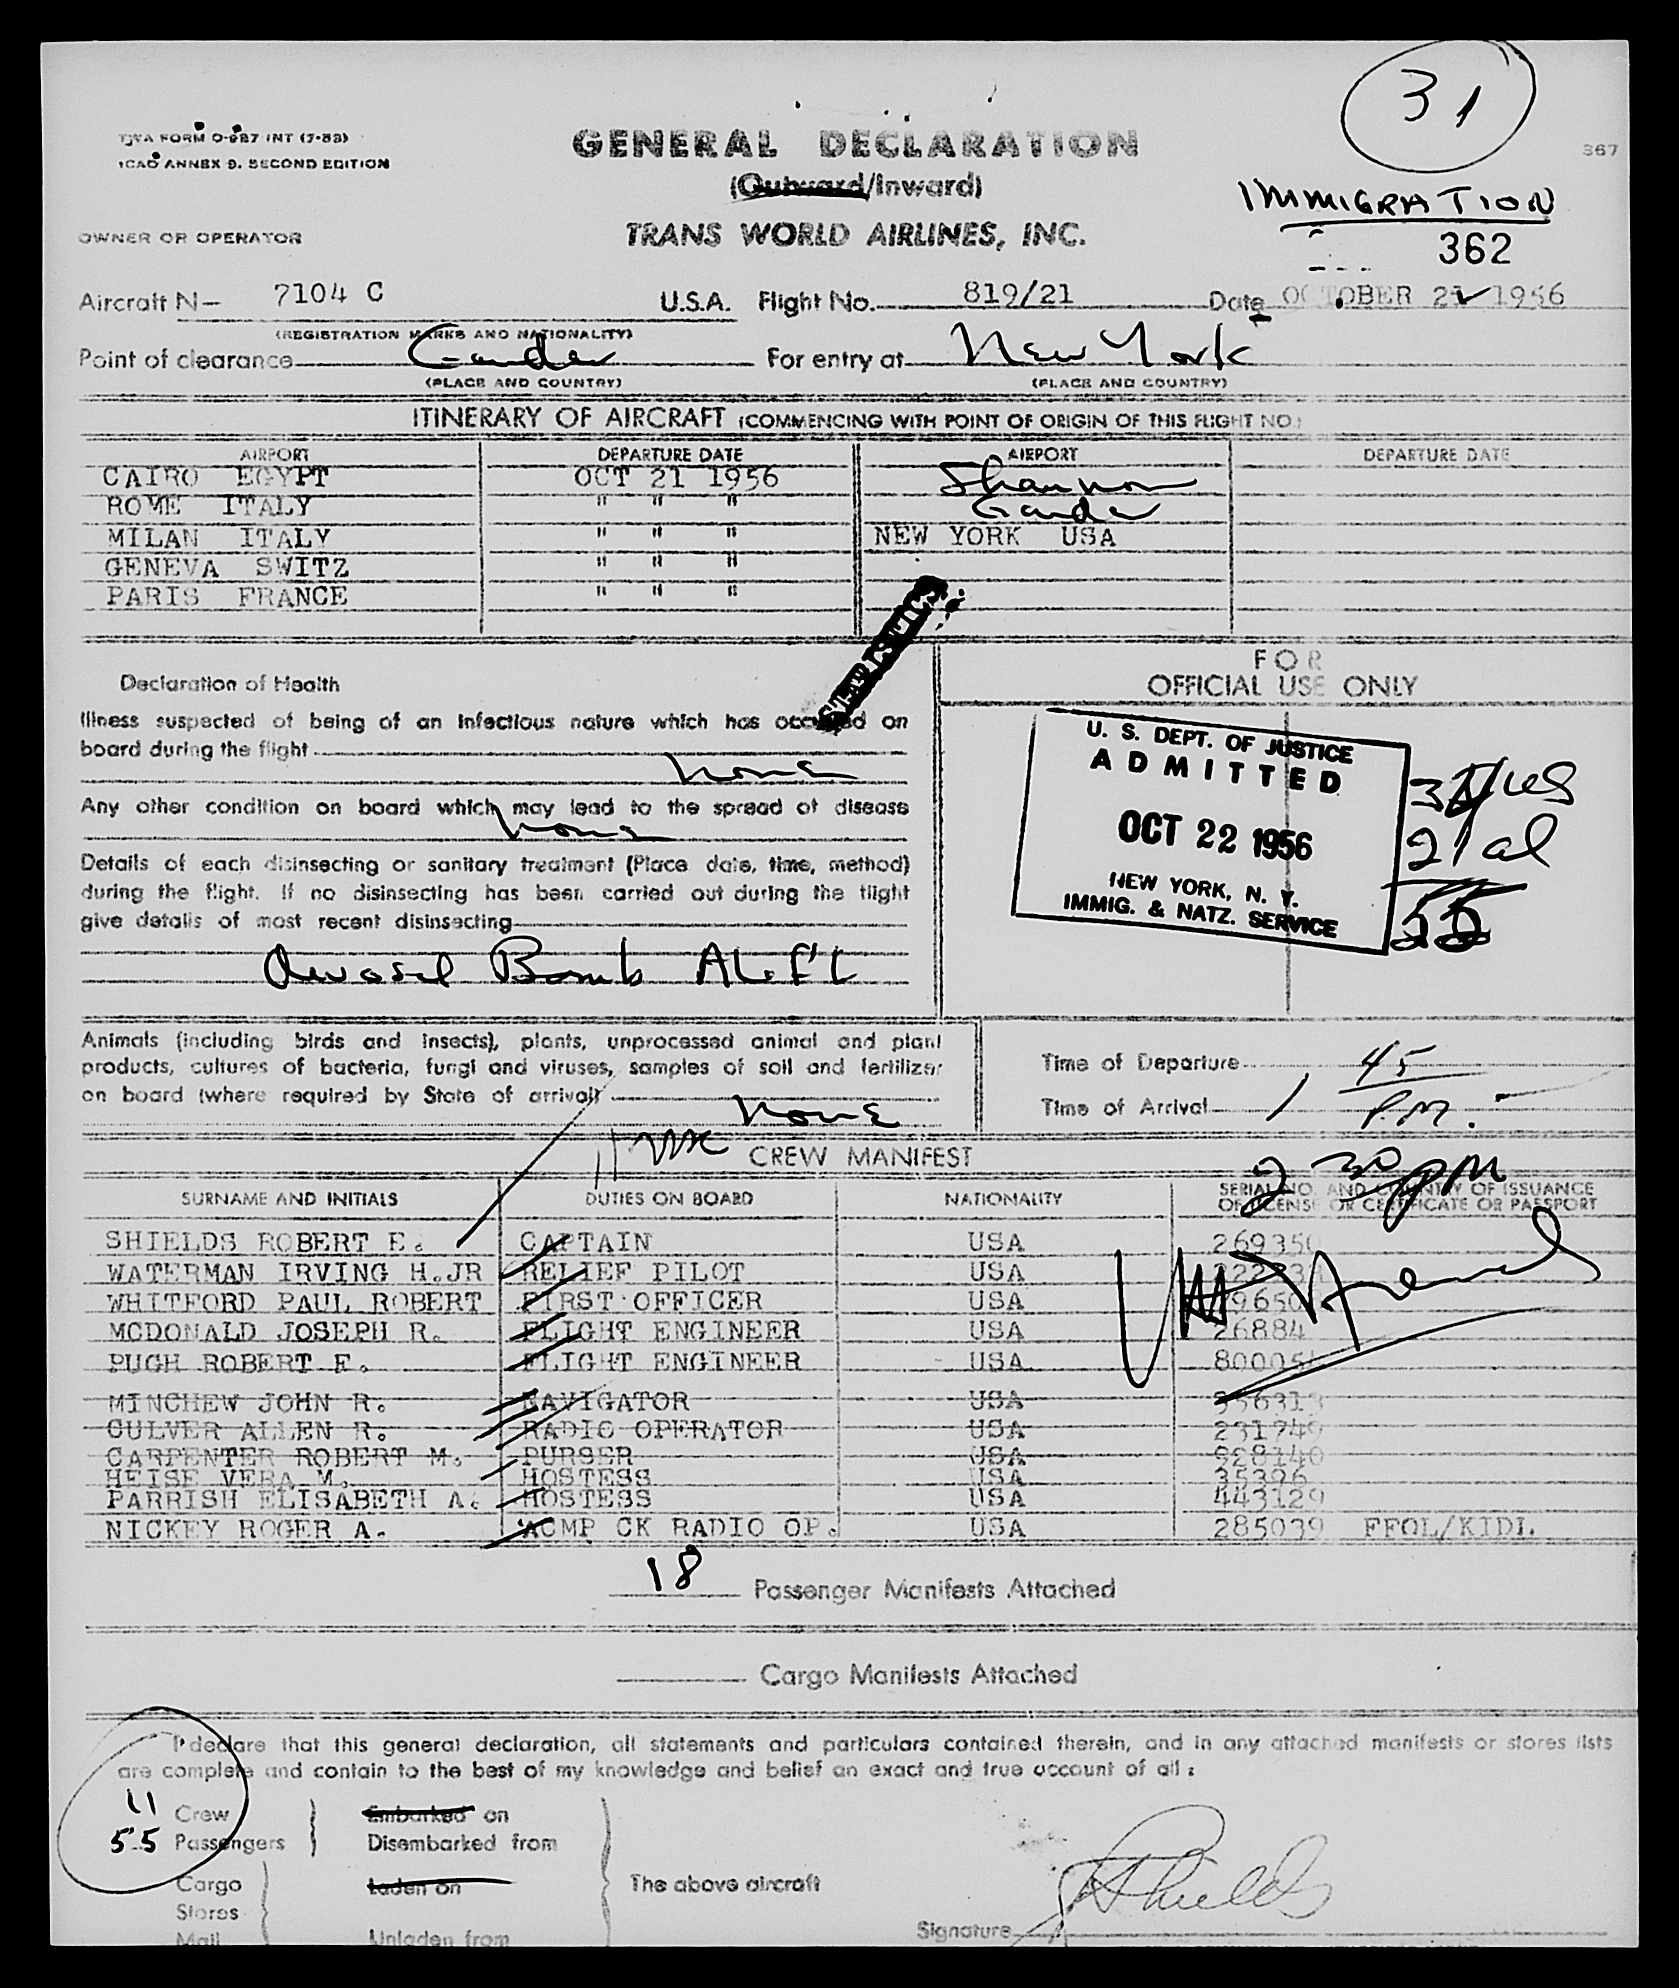 31
TWA FORM O-987 INT (7-53)
ICAO ANNEX 9. SECOND EDITION
GENERAL DECLARATION
367
(Outward/Inward)
IMMIGRATION
OWNER OR OPERATOR
TRANS WORLD AIRLINES, INC.
362
Aircraft N- 7104 C U.S.A. Flight No. 819/21 Date OCTOBER 21 1956
(REGISTRATION MARKS AND NATIONALITY)
Point of clearance Gander For entry at New York
(PLACE AND COUNTRY) (PLACE AND COUNTRY)
ITINERARY OF AIRCRAFT (COMMENCING WITH POINT OF ORIGIN OF THIS FLIGHT NO.)
AIRPORT DEPARTURE DATE AIRPORT DEPARTURE DATE
CAIRO EGYPT OCT 21 1956 Shannon
ROME ITALY " " " Gander
MILAN ITALY " " " NEW YORK USA
GENEVA SWITZ " " "
PARIS FRANCE " " "
STATISTICS
FOR
OFFICIAL USE ONLY
Declaration of Health
Illness suspected of being of an infectious nature which has occurred on
board during the flight
none
Any other condition on board which may lead to the spread of disease
none
Details of each disinsecting or sanitary treatment (Place date, time, method)
during the flight. If no disinsecting has been carried out during the flight
give details of most recent disinsecting
Bomb
U. S. DEPT. OF JUSTICE
ADMITTED
OCT 22 1956
NEW YORK, N. Y.
IMMIG. & NATZ. SERVICE
us
21 al
55
Animals (including birds and insects), plants, unprocessed animal and plant
products, cultures of bacteria, fungi and viruses, samples of soil and fertilizer
on board (where required by State of arrival)
none
Time of Departure
Time of Arrival 1 45 P.M.
2 30 PM
11
CREW MANIFEST
SURNAME AND INITIALS DUTIES ON BOARD NATIONALITY SERIAL NO. AND COUNTRY OF ISSUANCE
OF LICENSE OR CERTIFICATE OR PASSPORT
SHIELDS ROBERT E. CAPTAIN USA 269350
WATERMAN IRVING H.JR RELIEF PILOT USA
WHITFORD PAUL ROBERT FIRST OFFICER USA
MCDONALD JOSEPH R. FLIGHT ENGINEER USA 26884
PUGH ROBERT F. FLIGHT ENGINEER USA
MINCHEW JOHN R. NAVIGATOR USA
CULVER ALLEN R. RADIO OPERATOR USA 231749
CARPENTER ROBERT M. PURSER USA 928140
HEISE VERA M. HOSTESS USA 35396
PARRISH ELISABETH A. HOSTESS USA 443129
NICKEY ROGER A. ACMP CK RADIO OP. USA 285039 FFOL/KIDL
18 Passenger Manifests Attached
Cargo Manifests Attached
I declare that this general declaration, all statements and particulars contained therein, and in any attached manifests or stores lists
are complete and contain to the best of my knowledge and belief an exact and true account of all:
11 Crew Embarked on
55 Passengers Disembarked from
Cargo Laden on The above aircraft
Stores
Mail Unladen from
Signature Shields